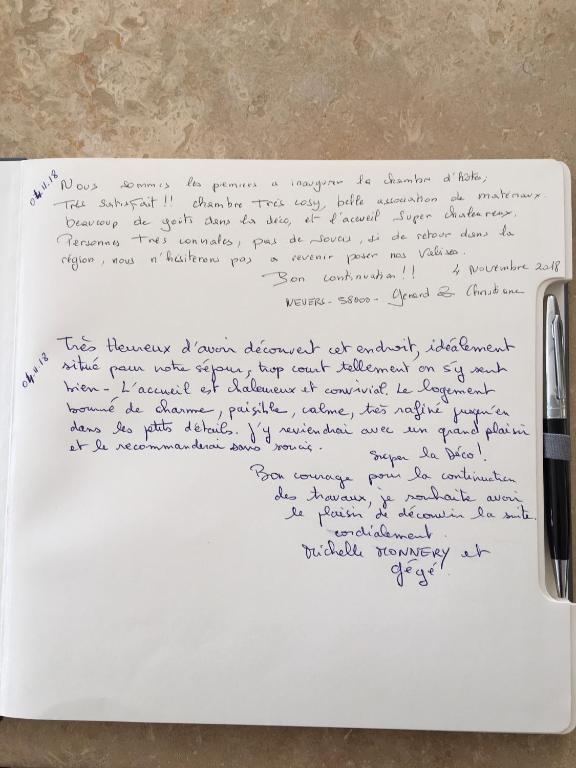 04.11.18
Nous sommes les premiers a inaugurer la chambre d'hôtes,
Très satisfait !! chambre très cosy, belle association de matériaux.
beaucoup de goûts dans la déco, et l'accueil super chaleureux.
Personnes très connales, pas de soucis, si de retour dans la
région, nous n'hésiterons pas a revenir poser nos valises.
Bon continuation !! 4 Novembre 2018
NEVERS - 58000 - Gerard & Christiane
04.11.18
Très Heureux d'avoir découvert cet endroit, idéalement
situé pour notre séjour, trop court tellement on s'y sent
bien - L'accueil est chaleureux et convivial. Le logement
bourré de charme, paisible, calme, très rafiné jusqu'en
dans les ptits détails. J'y reviendrai avec un grand plaisir
et le recommanderai sans soucis.
Super la Déco !
Bon courage pour la continuation
des travaux, je souhaite avoir
le plaisir de découvrir la suite.
cordialement.
Michelle MONNERY et
Gégé.